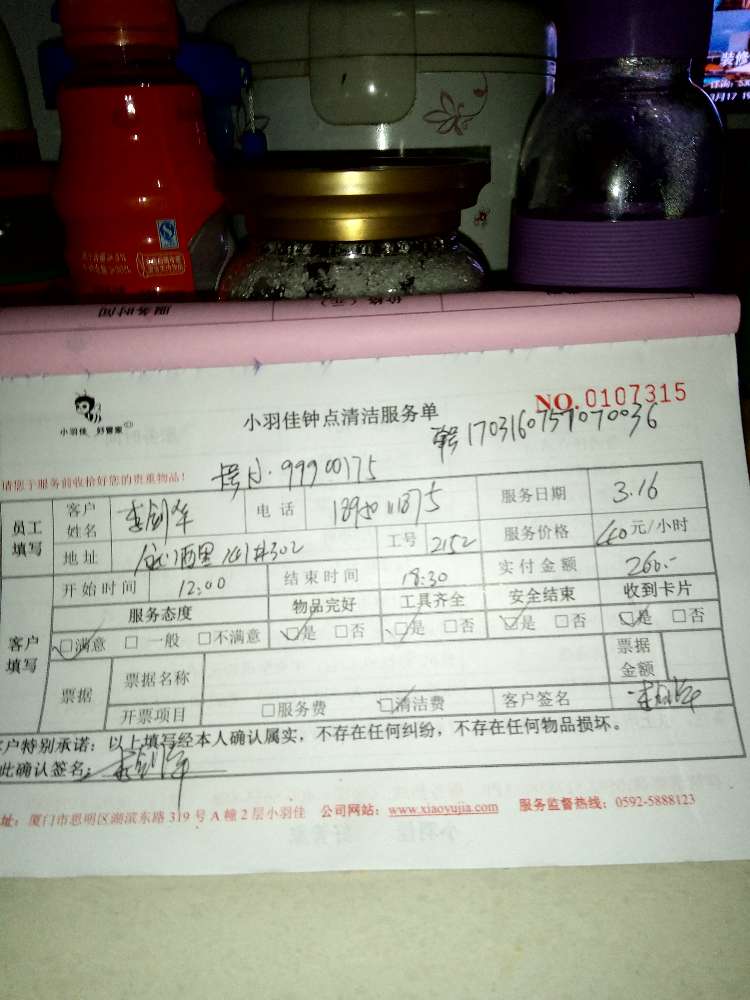 装修
小羽佳 好管家
小羽佳钟点清洁服务单
NO.0107315
单号1703160757070036
请您于服务前收拾好您的贵重物品!
卡号小.99900175
员工填写 客户姓名 电话 服务日期 3.16
地址 302 工号 2152 服务价格 40元/小时
开始时间 12:00 结束时间 18:30 实付金额 260.-
客户填写 服务态度 物品完好 工具齐全 安全结束 收到卡片
☑满意 □一般 □不满意 ☑是 □否 ☑是 □否 ☑是 □否 ☑是 □否
票据 票据名称 票据金额
开票项目 □服务费 ☑清洁费 客户签名
客户特别承诺:以上填写经本人确认属实,不存在任何纠纷,不存在任何物品损坏。
此确认签名:
址:厦门市思明区湖滨东路319号A幢2层小羽佳 公司网站:www.xiaoyujia.com 服务监督热线:0592-5888123